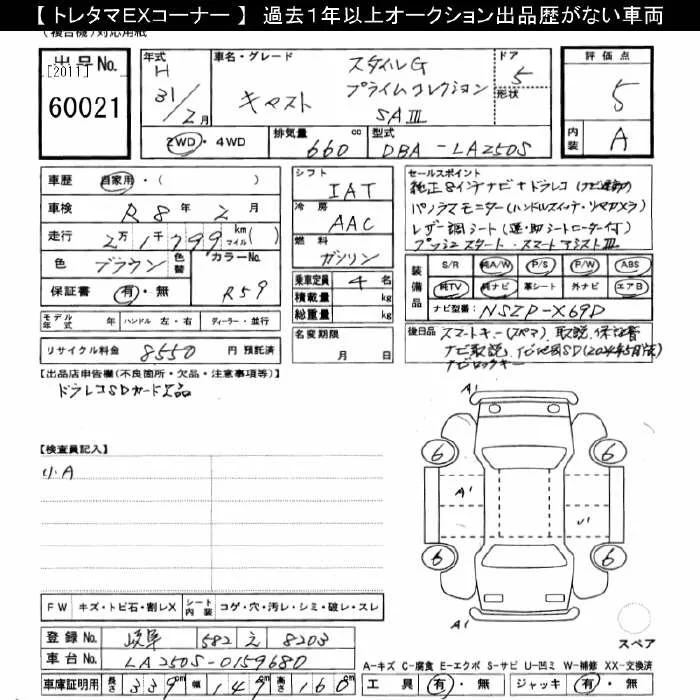 【 トレタマEXコーナー 】 過去1年以上オークション出品歴がない車両
(複合機)対応用紙
出品No.
[2011]
60021
年式 H 31/2月
車名・グレード
キャスト
スタイルG
プライムコレクション
SAⅢ
ドア 5
形状
評価点
5
内装 A
2WD・4WD
排気量 660 cc
型式 DBA-LA250S
車歴 自家用・( )
車検 R8年2月
走行 2万1千799 km マイル( )
色 ブラウン
色替
カラーNo. R59
保証書 有・無
モデル年式 年 ハンドル 左・右 ディーラー・並行
リサイクル料金 8550 円 預託済
シフト IAT
冷房 AAC
燃料 ガソリン
乗車定員 4 名
積載量 kg
総重量 kg
名変期限
月 日
セールスポイント
純正8インチナビ+ドラレコ
パノラマモニター(ハンドルスイッチ・リヤカメラ)
レザー調シート(運・助シートヒーター付)
プッシュスタート・スマートアシストⅢ
装備品
S/R 純A/W P/S P/W ABS
純TV 純ナビ 革シート 外ナビ エアB
ナビ型番: NSZP-X69D
後日品 スマートキー(スペア) 取説、保証書
ナビ取説、ナビ地図SD(2024年5月版)
ナビロックキー
【出品店申告欄(不良箇所・欠品・注意事項等)】
ドラレコSDカード欠品
【検査員記入】
小A
A1
6
6
A1
6
6
A1
スペア
FW キズ・トビ石・割レX シート内装 コゲ・穴・汚レ・シミ・破レ・スレ
登録No. 岐阜 582 え 8203
車台No. LA250S-0159680
車庫証明用 長さ 339cm 幅 149cm 高さ 160cm
A-キズ C-腐食 E-エクボ S-サビ U-凹ミ W-補修 XX-交換済
工具 有・無 ジャッキ 有・無